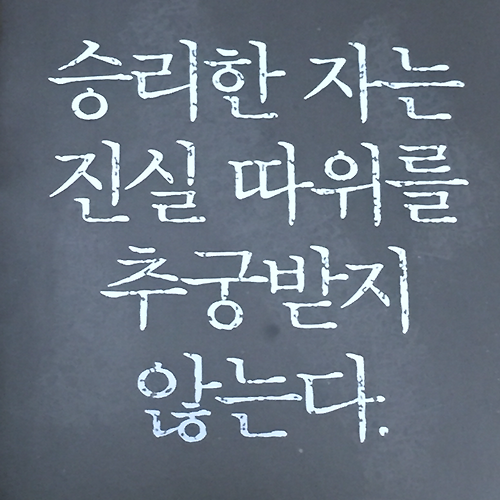 승리한 자는
진실 따위를
추궁받지
않는다.